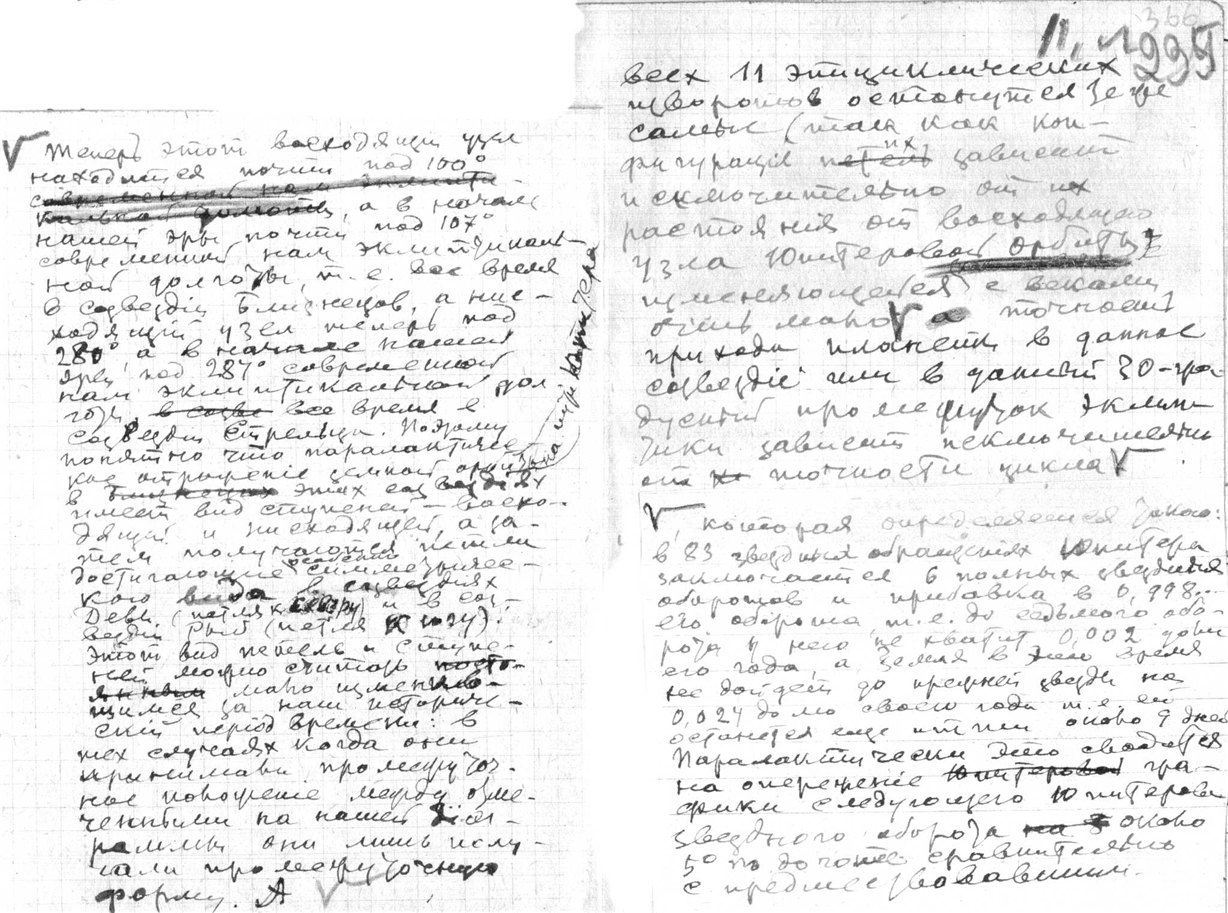 Теперь этот восходящий узел
находится почти под 100°
современной нам эклипти-
кальной долготы, а в начале
нашей эры почти под 107°
современной нам эклиптикаль-
ной долготы, т.е. все время
в созвездіи Близнецов, а нис-
ходящій узел теперь под
280° а в начале нашей
эры под 287° современной
нам эклиптикальной дол
готы, в созве все время в
созвездіи Стрельца. Поэтому
понятно что параллактичес-
кое отраженіе земной орбиты
на пути Юпитера
в Близнецах этих созвездіях
имеет вид ступеней – восхо-
дящей и нисходящей, а за-
тем получаются петли
достигающие симметричес-
кого вида в созвездіях
Девы (петля к северу) и в соз-
вездіи Рыб (петля к югу).
Этот вид петель и ступе-
ней можно считать посто-
янным мало изменяю-
щимся за наш историче-
скій період времени: в
тех случаях когда они
принимали промежуточ-
ное положеніе между отме-
ченными на нашей діаг-
раммы они лишь полу-
чали промежуточную
форму. А
366
11, 235
всех 11 эпициклических
оборотов останутся те же
самые (так как кон-
фигураціи петель их зависит
исключительно от их
растоянія от восходящаго
узла Юпитеровой орбиты
изменяющейся с веками
очень мало а точность
прихода планеты в данное
созвездіе или в данный 30-гра-
дусный промежуток эклип
тики зависит исключительно
от точности цикла
которая определяется
в 83 звездных обращеніях Юпитера
заключается 6 полных звездных
оборотов и прибавка в 0,998...
его оборота т.е. до седьмого обо-
рота у него не хватит 0,002 доли
его года, а земля в это время
не дойдет до прежней звезды на
0,024 долю своего года т.е. ей
останется еще итти около 9 дней
Паралактически это сводится
на опереженіе Юпитеровой гра-
фики следующего Юпитерова
звездного оборота на 3 около
5° по долготе сравнительно
с предшествовавшим.